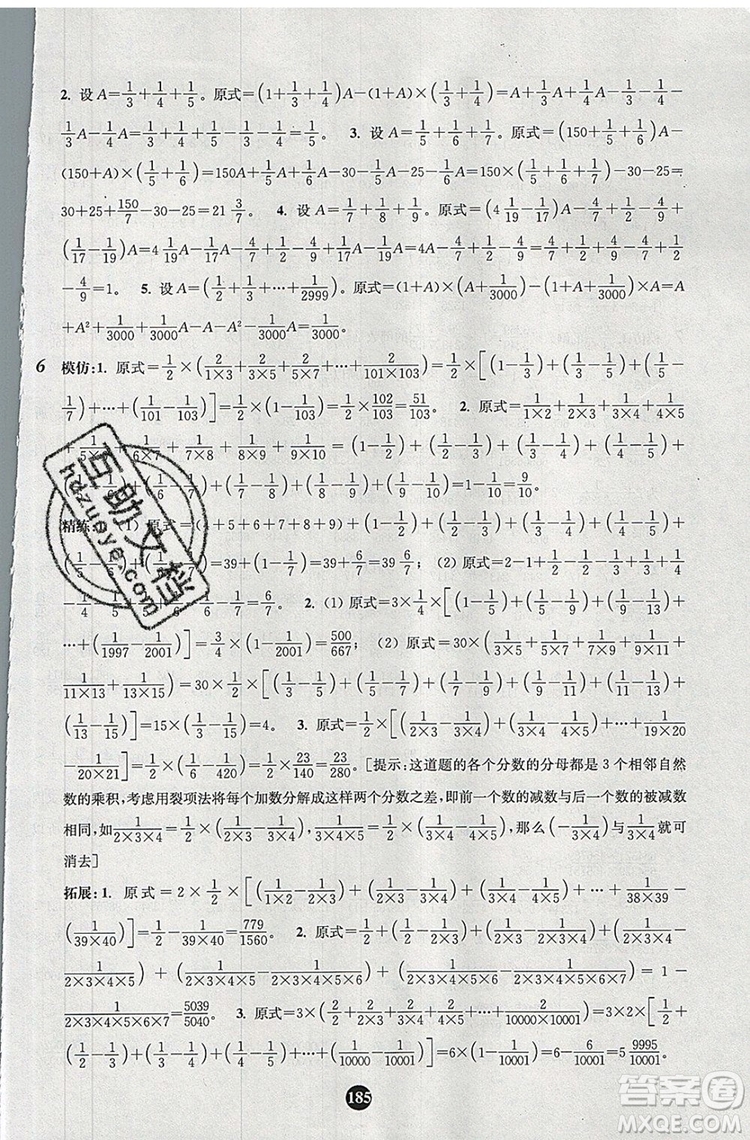 2. 设 A=1/3+1/4+1/5。原式=(1+1/3+1/4)A-(1+A)×(1/3+1/4)=A+1/3A+1/4A-1/3-1/4-
1/3A-1/4A=A-1/3-1/4=1/5。 3. 设 A=1/5+1/6+1/7。原式=(150+1/5+1/6)A-
(150+A)×(1/5+1/6)=150A+1/5A+1/6A-30-25-1/5A-1/6A=150×(1/5+1/6+1/7)-30-25=
30+25+150/7-30-25=21 3/7。 4. 设 A=1/7+1/8+1/9。原式=(4 1/19-1/17)A-4/7-4/8+
(1/17-1/19)A=4 1/19A-1/17A-4/7-4/8+1/17A-1/19A=4A-4/7-4/8=4/7+4/8+4/9-4/7-4/8+1/9=4/9
-4/9=1。 5. 设 A=(1/2+1/3+⋯+1/2999)。原式=(1+A)×(A+1/3000)-(1+A+1/3000)×A=A
+A²+1/3000+1/3000A-A-A²-1/3000A=1/3000。
6 模仿:1. 原式=1/2×(2/1×3+2/3×5+2/5×7+⋯+2/101×103)=1/2×[(1-1/3)+(1/3-1/5)+(1/5-
1/7)+⋯+(1/101-1/103)]=1/2×(1-1/103)=1/2×102/103=51/103。 2. 原式=1/1×2+1/2×3+1/3×4+1/4×5
+1/5×6+1/6×7+1/7×8+1/8×9+1/9×10=(1-1/2)+(1/2-1/3)+(1/3-1/4)+(1/4-1/5)+
1/7)+(1/7-1/8)+(1/8-1/9)+(1/9-1/10)=1-1/10=9/10。
精练:(1) 原式=(4+5+6+7+8+9)+(1-1/2)+(1/2-1/3)+(1/3-1/4)+
1/6)+(1/6-1/7)=39+(1-1/7)=39+6/7=39 6/7; (2) 原式=2-1+1/2-1/2+1/3-1/3+
1/4-1/4+1/5-1/5+1/6-1/6-1/7=1-1/7=6/7。 2. (1) 原式=3×1/4×[(1-1/5)+(1/5-1/9)+(1/9-1/13)+
⋯+(1/1997-1/2001)]=3/4×(1-1/2001)=500/667; (2) 原式=30×(1/3×5+1/5×7+1/7×9+1/9×11+
1/11×13+1/13×15)=30×1/2×[(1/3-1/5)+(1/5-1/7)+(1/7-1/9)+(1/9-1/11)+(1/11-1/13)+
(1/13-1/15)]=15×(1/3-1/15)=4。 3. 原式=1/2×[(1/2×3-1/3×4)+(1/3×4-1/4×5)+⋯+(1/19×20
-1/20×21)]=1/2×(1/6-1/420)=1/2×23/140=23/280。[提示:这道题的各个分数的分母都是 3 个相邻自然
数的乘积,考虑用裂项法将每个加数分解成这样两个分数之差,即前一个数的减数与后一个数的被减数
相同,如1/2×3×4=1/2×(1/2×3-1/3×4),1/3×4×5=1/2×(1/3×4-1/4×5),那么(-1/3×4)与1/3×4就可
消去]
拓展:1. 原式=2×1/2×[(1/1×2-1/2×3)+(1/2×3-1/3×4)+(1/3×4-1/4×5)+⋯+(1/38×39
-1/39×40)]=1/2-1/39×40=779/1560。 2. 原式=1/2+(1/2-1/2×3)+(1/2×3-1/2×3×4)+(1/2×3×4
-1/2×3×4×5)+(1/2×3×4×5-1/2×3×4×5×6)+(1/2×3×4×5×6-1/2×3×4×5×6×7)=1-
1/2×3×4×5×6×7=5039/5040。 3. 原式=3×(2/2+2/2×3+2/3×4+⋯+2/10000×10001)=3×2×[(1-1/2)+
(1/2-1/3)+(1/3-1/4)+⋯+(1/10000-1/10001)]=6×(1-1/10001)=6-6/10001=5 9995/10001。
185
互助文档
hdzuoye.com
答案圈
MXQE.COM